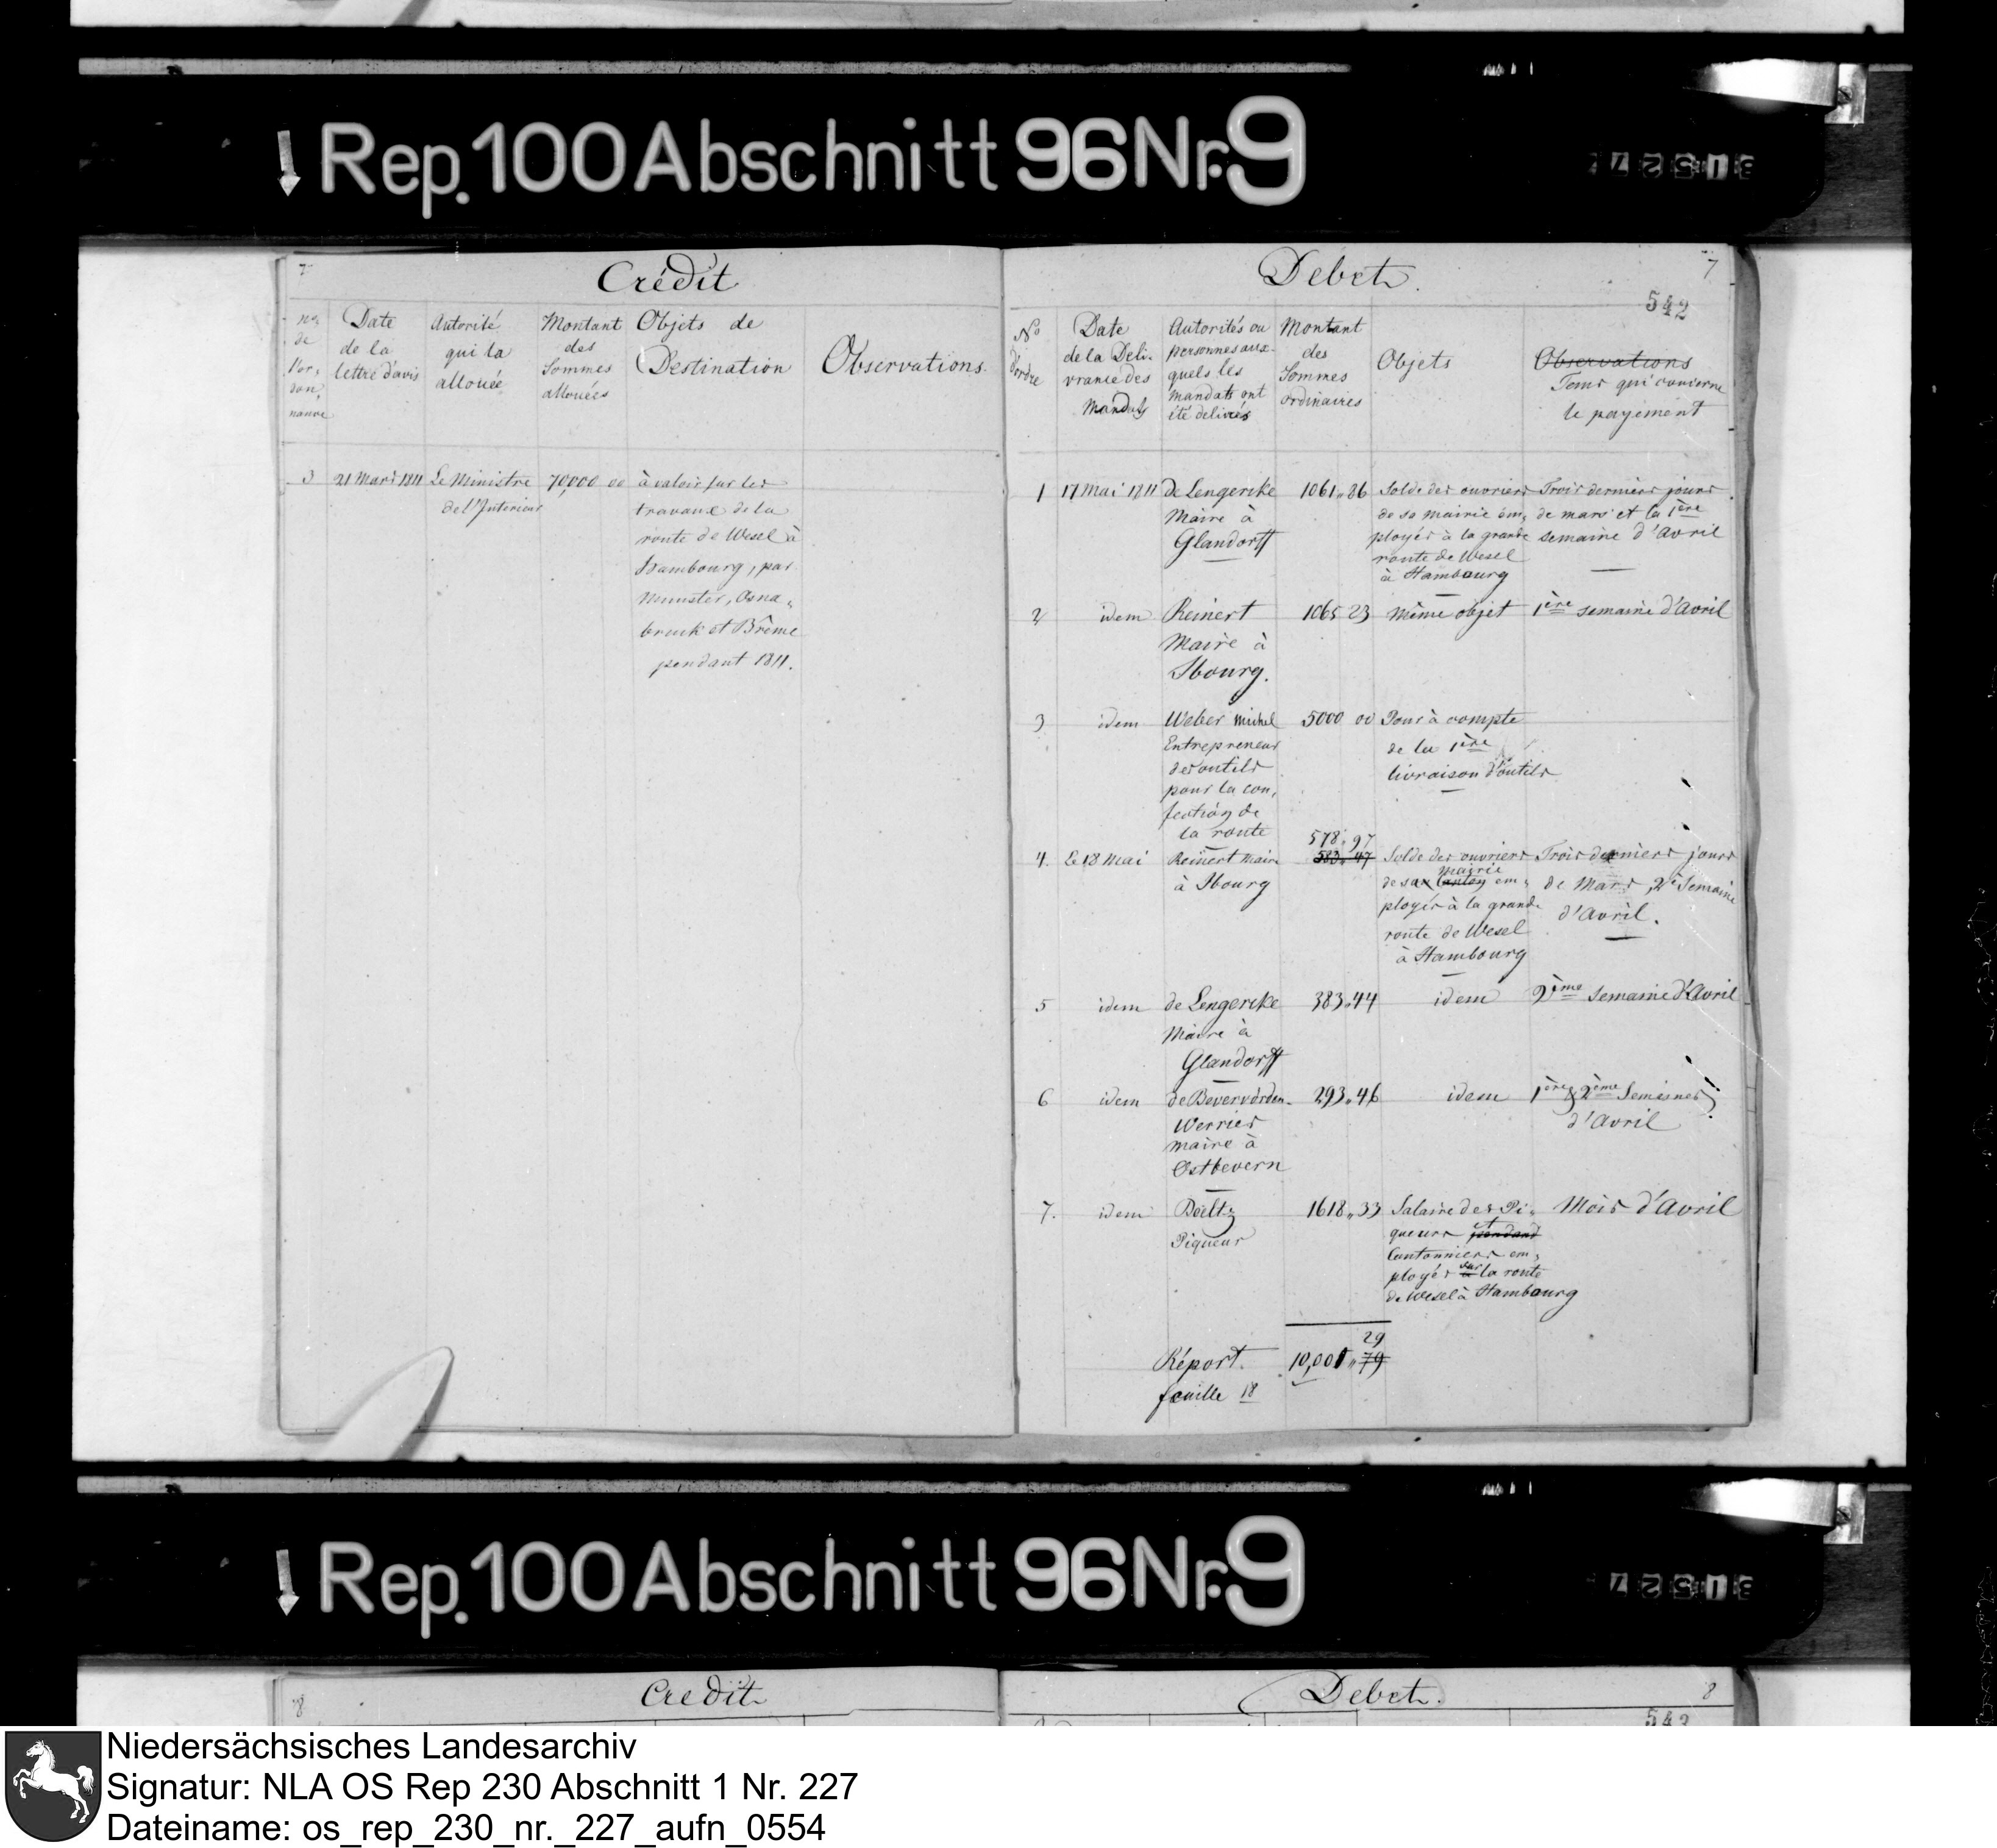 Rep. 100 Abschnitt 96 Nr. 9
31527
7
Crédit
no.
de
l'or,
don,
nance
Date
de la
lettre d'avis
Autorité
qui l'a
allouée
Montant
des
Sommes
allouées
Objets de
Destination
Observations.
3
21 Mars 1811
Le Ministre
de l'Interieur
70,000 00
à valoir sur les
travaux de la
route de Wesel à
Hambourg, par
Munster, Osna,
bruck et Brême
pendant 1811.
Debet.
7
542
No
d'ordre
Date
de la Deli-
vrance des
Mandats
Autorités ou
personnes aux-
quels les
mandats ont
été delivrés
Montant
des
Sommes
ordinaires
Objets
Observations
Tems qui concerne
le payement
1
17 Mai 1811
de Lengercke
Maire à
Glandorff
1061,,86
Solde des ouvriers
de sa mairie em,
ployés à la grande
route de Wesel
à Hambourg
Trois derniers jours
de mars et la 1ère
semaine d'Avril
2
idem
Reinert
Maire à
Ibourg.
1065 23
même objet
1ère semaine d'Avril
3
idem
Weber Michel
Entrepreneur
des outils
pour la con,
fection de
la route
5000 00
Pour à compte
de la 1ère
livraison d'outils
4.
Le 18 Mai
Reinert Maire
à Ibourg
578,,97
583,,47
Solde des ouvriers
mairie
de sa canton em,
ployés à la grande
route de Wesel
à Hambourg
Trois derniers jours
de Mars, 2e Semaine
d'Avril.
5
idem
de Lengercke
Maire à
Glandorff
383,,44
idem
2ème Semaine d'Avril
6
idem
de Beverförden-
Werries
maire à
Ostbevern
293,,46
idem
1ère & 2ème Semaines
d'Avril
7.
idem
Baltz
Piqueur
1618,,33
Salaire des Pi,
queurs et pendant
Cantonniers em,
ployés sur la route
de Wesel à Hambourg
Mois d'Avril
Réport.
feuille 18
29
10,001,,79
Rep. 100 Abschnitt 96 Nr. 9
31527
8
Credit
Debet.
8
543
Niedersächsisches Landesarchiv
Signatur: NLA OS Rep 230 Abschnitt 1 Nr. 227
Dateiname: os_rep_230_nr._227_aufn_0554